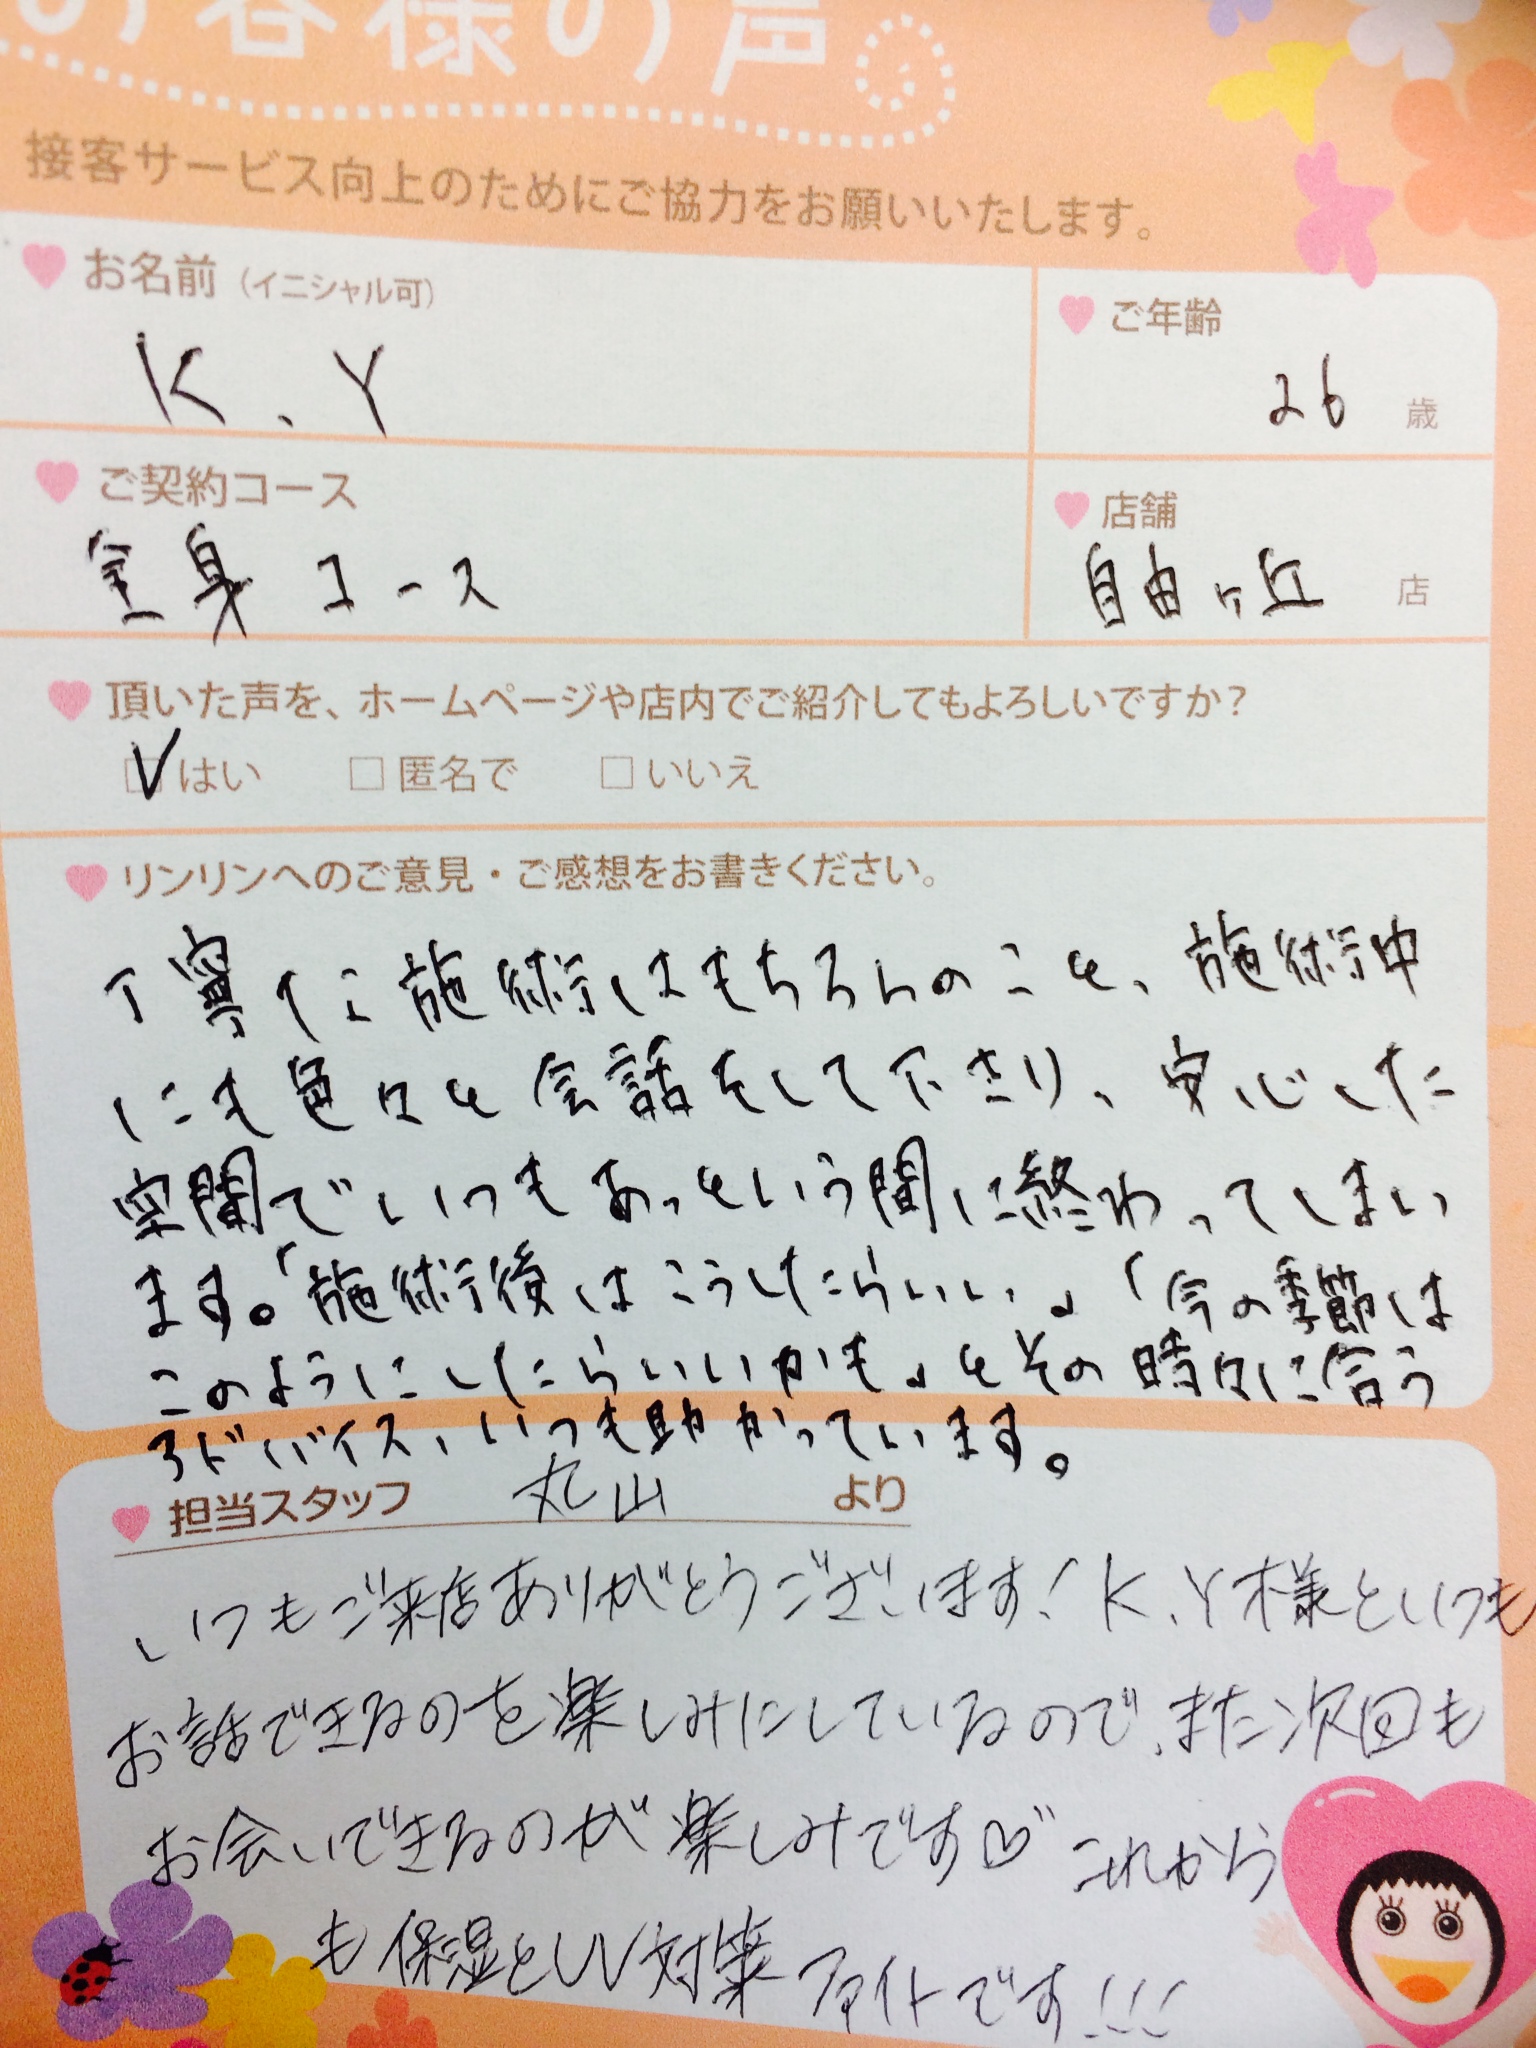 の客様の声。
接客サービス向上のためにご協力をお願いいたします。
お名前（イニシャル可）
K.Y
ご年齢
26 歳
ご契約コース
全身コース
店舗
自由ヶ丘 店
頂いた声を、ホームページや店内でご紹介してもよろしいですか？
はい □匿名で □いいえ
リンリンへのご意見・ご感想をお書きください。
丁寧な施術はもちろんのこと、施術中
にも色々と会話をして下さり、安心した
空間でいつもあっという間に終わってしまい
ます。「施術後はこうしたらいい。」「今の季節は
このようにしたらいいかも」とその時々に合う
アドバイス、いつも助かっています。
担当スタッフ 丸山 より
いつもご来店ありがとうございます！K.Y様といつも
お話できるのを楽しみにしているので、また次回も
お会いできるのが楽しみです♡ これから
も保湿とUV対策ファイトです!!!